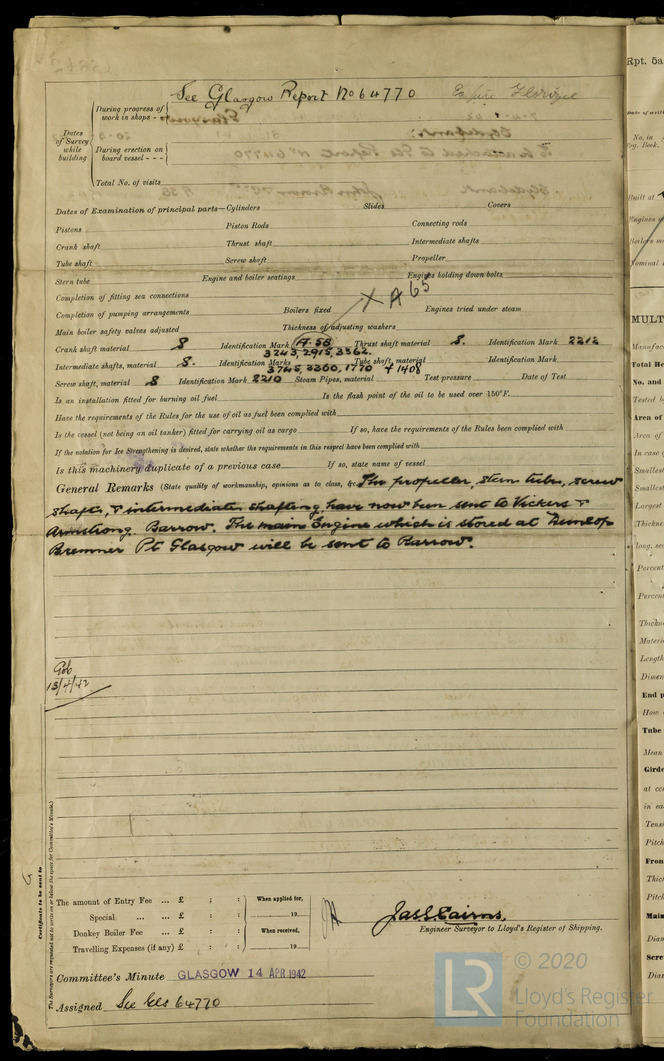 See Glasgow Report No 64770
Dates of Survey while building
During progress of work in shops - -
During erection on board vessel - - -
Total No. of visits
Dates of Examination of principal parts—Cylinders Slides Covers
Pistons Piston Rods Connecting rods
Crank shaft Thrust shaft Intermediate shafts
Tube shaft Screw shaft Propeller
Stern tube Engine and boiler seatings Engines holding down bolts
Completion of fitting sea connections
X A65
Completion of pumping arrangements Boilers fixed Engines tried under steam
Main boiler safety valves adjusted Thickness of adjusting washers
Crank shaft material S Identification Mark A-58 Thrust shaft material S. Identification Mark 2212
3243, 2915, 3362.
Intermediate shafts, material S. Identification Marks Tube shaft, material Identification Mark
3745, 3360, 1770 + 1408
Screw shaft, material S Identification Mark 2210 Steam Pipes, material Test pressure Date of Test
Is an installation fitted for burning oil fuel Is the flash point of the oil to be used over 150°F.
Have the requirements of the Rules for the use of oil as fuel been complied with
Is the vessel (not being an oil tanker) fitted for carrying oil as cargo If so, have the requirements of the Rules been complied with
If the notation for Ice Strengthening is desired, state whether the requirements in this respect have been complied with
Is this machinery duplicate of a previous case If so, state name of vessel
General Remarks (State quality of workmanship, opinions as to class, &c. The propeller, stern tube, screw
shafts, & intermediate shafting have now been sent to Vickers &
Armstrong. Barrow. The main Engine which is stored at Dunlop
Bremner Pt Glasgow will be sent to Barrow.
13/4/42
Certificate to be sent to
The Surveyors are requested not to write on or below the space for Committee's Minute.)
The amount of Entry Fee ... £ : : When applied for,
Special ... ... £ : : 19
Donkey Boiler Fee ... £ : : When received,
Travelling Expenses (if any) £ : : 19
Jas S Cairns.
Engineer Surveyor to Lloyd's Register of Shipping.
Committee's Minute GLASGOW 14 APR 1942
Assigned See Gls 64770
LR
© 2020
Lloyd's Register
Foundation
Rpt. 5a
No. in
Reg. Book.
Built at
MULT
Total He
No. and
Area of
Area of
In case
Smallest
Smallest
Largest
long, sec
Percent
Percen
Length
End p
How
Tube
Girde
at ce
in ea
Pitch
Fron
Pitch
Main
Scre